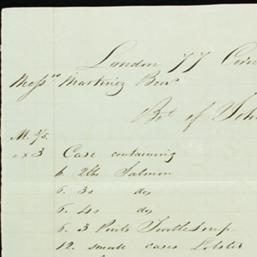 London 77 Corn
Mess^rs Martinez Bro^s
Bo^t of John
M. 1/3.
1 x 3 Case containing
6. 2lbs Salmon
6. 3s do
6. 4s do
6. 3 Pints Turtle Soup
12. small cases Lobster